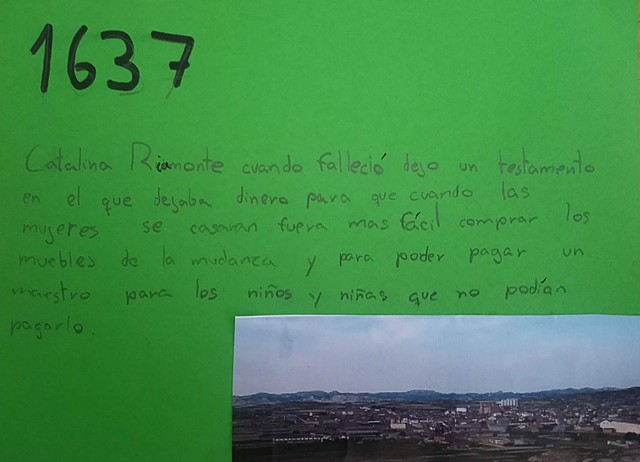 1637
Catalina Riamonte cuando falleció dejo un testamento
en el que dejaba dinero para que cuando las
mujeres se casaran fuera mas fácil comprar los
muebles de la mudanza y para poder pagar un
maestro para los niños y niñas que no podían
pagarlo.